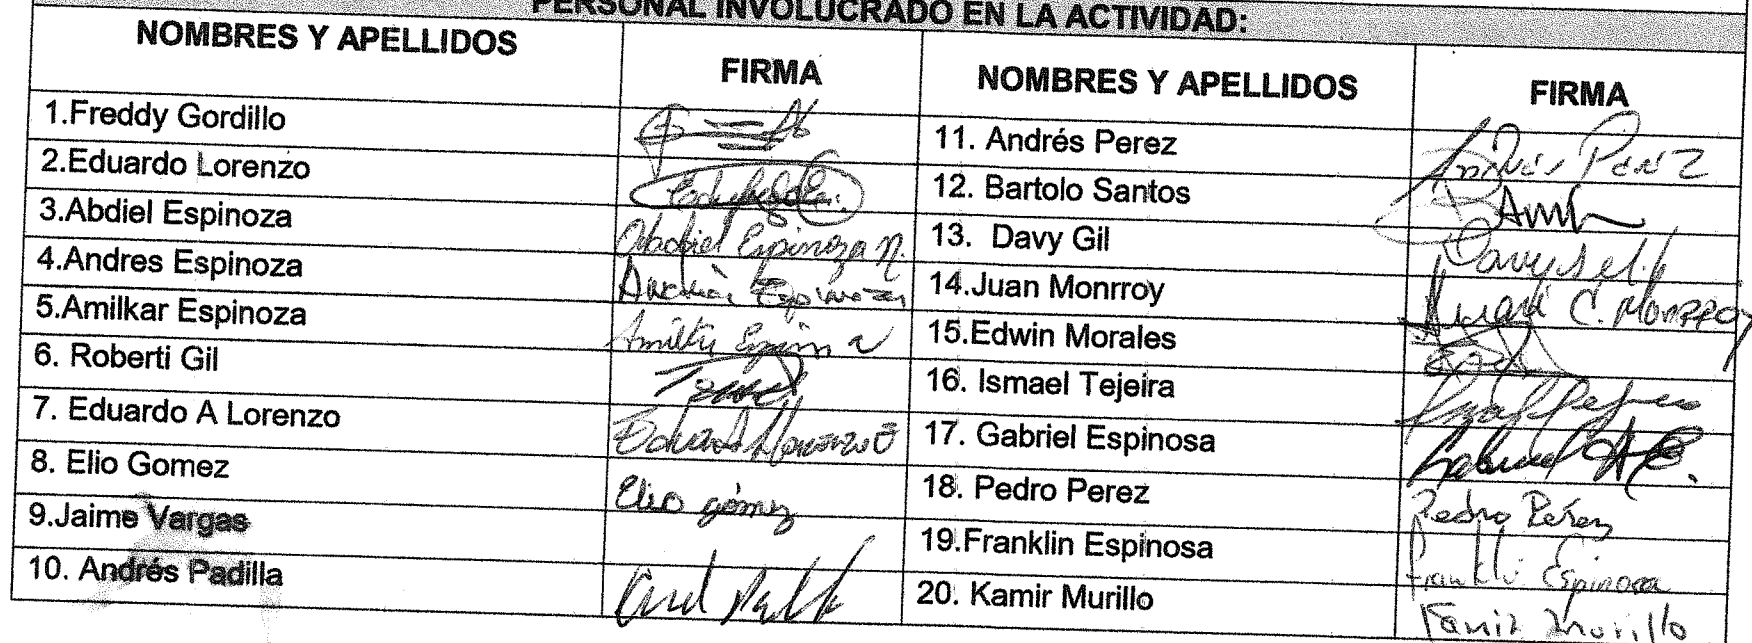 PERSONAL INVOLUCRADO EN LA ACTIVIDAD:
NOMBRES Y APELLIDOS FIRMA NOMBRES Y APELLIDOS FIRMA
1.Freddy Gordillo 11. Andrés Perez Andrés Perez
2.Eduardo Lorenzo 12. Bartolo Santos
3.Abdiel Espinoza Abdiel Espinoza N. 13. Davy Gil Davys Gil
4.Andres Espinoza Andres Espinoza 14.Juan Monrroy Juan C. Monrroy
5.Amilkar Espinoza 15.Edwin Morales
6. Roberti Gil 16. Ismael Tejeira
7. Eduardo A Lorenzo 17. Gabriel Espinosa Gabriel
8. Elio Gomez Elio gómez 18. Pedro Perez Pedro Perez
9.Jaime Vargas 19.Franklin Espinosa Franklin Espinosa
10. Andrés Padilla 20. Kamir Murillo Kamir Murillo